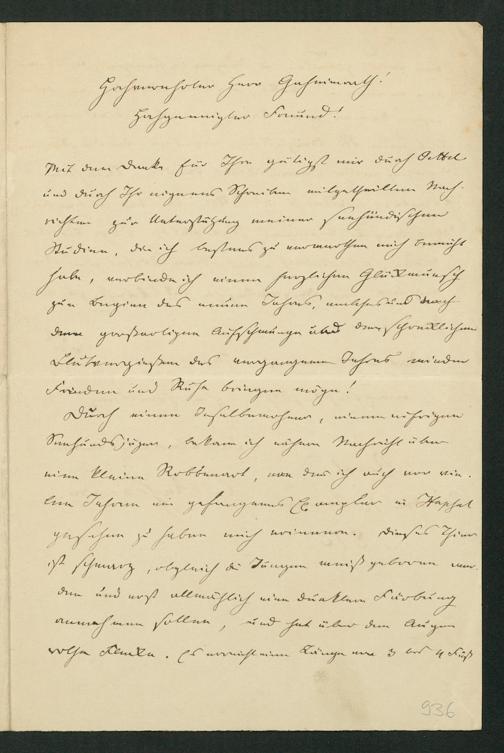 Hochverehrter Herr Geheimrath!
Hochgeneigter Freund!
Mit dem Danke für Ihre gütigst mir durch
und durch Ihr eigenes Schreiben mitgetheilten Nach-
richten zur Unterstützung meiner seehündischen
Studien, die ich bestens zu verwerthen mich bemüht
habe, verbinde ich einen herzlichen Glückwunsch
zum Beginn des neuen Jahres, welches uns nach
dem großartigen Aufschwunge und dem schrecklichen
Blutvergießen des vergangenen Jahres wieder
Frieden und Ruhe bringen möge!
Durch einen Inselbewohner, einen eifrigen
Seehundsjäger, bekam ich nähere Nachricht über
eine kleine Robbenart, von der ich auch vor vie-
len Jahren ein gefangenes Exemplar in Hapsal
gesehen zu haben mich erinnere. Dieses Thier
ist schwarz, obgleich die Jungen weiß geboren wer-
den und erst allmählich eine dunklere Färbung
annehmen sollen, und hat über den Augen
rothe Flecke. Es erreicht eine Länge von 3 bis 4 Fuß
936